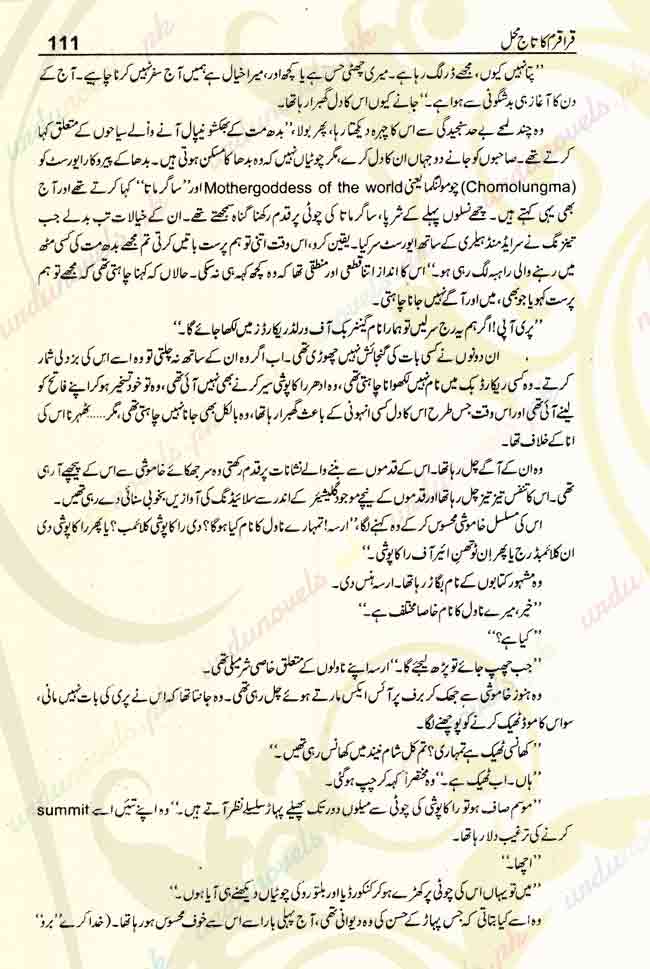 قراقرم کا تاج محل 111
”پتا نہیں کیوں، مجھے ڈر لگ رہا ہے۔ میری چھٹی حس ہے یا کچھ اور، میرا خیال ہے ہمیں آج سفر نہیں کرنا چاہیے۔ آج کے
دن کا آغاز ہی بدشگونی سے ہوا ہے۔“ جانے کیوں اس کا دل گھبرا رہا تھا۔
وہ چند لمحے بے حد سنجیدگی سے اس کا چہرہ دیکھتا رہا، پھر بولا، ”بدھ مت کے بھکشو نیپال آنے والے سیاحوں کے متعلق کہا
کرتے تھے۔ صاحبوں کو جانے دو جہاں ان کا دل کرے، مگر چوٹیاں نہیں کہ وہ بدھا کا مسکن ہوتی ہیں۔ بدھا کے پیروکار ایورسٹ کو
(Chomolungma) چومولنگما یعنی Mothergoddess of the world اور ”ساگر ماتا“ کہا کرتے تھے اور آج
بھی یہی کہتے ہیں۔ چھے نسلوں پہلے کے شرپا، ساگر ماتا کی چوٹی پر قدم رکھنا گناہ سمجھتے تھے۔ ان کے خیالات تب بدلے جب
تینزنگ نے سر ایڈمنڈ ہیلری کے ساتھ ایورسٹ سر کیا۔ یقین کرو، اس وقت اتنی توہم پرست باتیں کرتی تم مجھے بدھ مت کی کسی مٹھ
میں رہنے والی راہبہ لگ رہی ہو۔“ اس کا انداز اتنا قطعی اور منطقی تھا کہ وہ کچھ کہہ ہی نہ سکی۔ حالاں کہ کہنا چاہتی تھی کہ مجھے توہم
پرست کہو یا جو بھی، میں اور آگے نہیں جانا چاہتی۔
”پری آپی! اگر ہم یہ رج سر لیں تو ہمارا نام گینز بک آف ورلڈ ریکارڈز میں لکھا جائے گا۔“
ان دونوں نے کسی بات کی گنجائش نہیں چھوڑی تھی۔ اب اگر وہ ان کے ساتھ نہ چلتی تو وہ اسے اس کی بزدلی شمار
کرتے۔ وہ کسی ریکارڈ بک میں نام نہیں لکھوانا چاہتی تھی، وہ ادھر راکاپوشی سیر کرنے بھی نہیں آئی تھی، وہ تو خود تسخیر ہو کر اپنے فاتح کو
لینے آئی تھی اور اس وقت جس طرح اس کا دل کسی انہونی کے باعث گھبرا رہا تھا، وہ بالکل بھی جانا نہیں چاہتی تھی، مگر...... ٹھہرنا اس کی
انا کے خلاف تھا۔
وہ ان کے آگے چل رہا تھا۔ اس کے قدموں سے بننے والے نشانات پر قدم رکھتی وہ سر جھکائے خاموشی سے اس کے پیچھے آ رہی
تھی۔ اس کا تنفس تیز تیز چل رہا تھا اور قدموں کے نیچے موجود گلیشیئر کے اندر سے سلائیڈنگ کی آوازیں بخوبی سنائی دے رہی تھیں۔
اس کی مسلسل خاموشی محسوس کر کے وہ کہنے لگا، ”ارسہ! تمہارے ناول کا نام کیا ہوگا؟ دی راکاپوشی کلائمب؟ یا پھر راکاپوشی دی
ان کلائمبڈ رج یا پھر اِن ٹو تھِن ایئر آف راکاپوشی۔“
وہ مشہور کتابوں کے نام بگاڑ رہا تھا۔ ارسہ ہنس دی۔
”خیر، میرے ناول کا نام خاصا مختلف ہے۔“
”کیا ہے؟“
”جب چھپ جائے تو پڑھ لیجئے گا۔“ ارسہ اپنے ناولوں کے متعلق خاصی شرمیلی تھی۔
وہ ہنوز خاموشی سے جھک کر برف پر آئس ایکس مارتے ہوئے چل رہی تھی۔ وہ جانتا تھا کہ اس نے پری کی بات نہیں مانی،
سو اس کا موڈ ٹھیک کرنے کو پوچھنے لگا۔
”کھانسی ٹھیک ہے تمہاری؟ تم کل شام نیند میں کھانس رہی تھیں۔“
”ہاں۔ اب ٹھیک ہے۔“ وہ مختصراً کہہ کر چپ ہو گئی۔
”موسم صاف ہو تو راکاپوشی کی چوٹی سے میلوں دور تک پھیلے پہاڑ سلسلے نظر آتے ہیں۔“ وہ اپنے تئیں اسے summit
کرنے کی ترغیب دلا رہا تھا۔
”اچھا۔“
”میں تو یہاں اس کی چوٹی پر کھڑے ہو کر کنکورڈیا اور بلتورو کی چوٹیاں دیکھنے ہی آیا ہوں۔“
وہ اسے کیا بتاتی کہ جس پہاڑ کے حسن کی وہ دیوانی تھی، آج پہلی بار اسے اس سے خوف محسوس ہو رہا تھا۔ (خدا کرے ”برو“